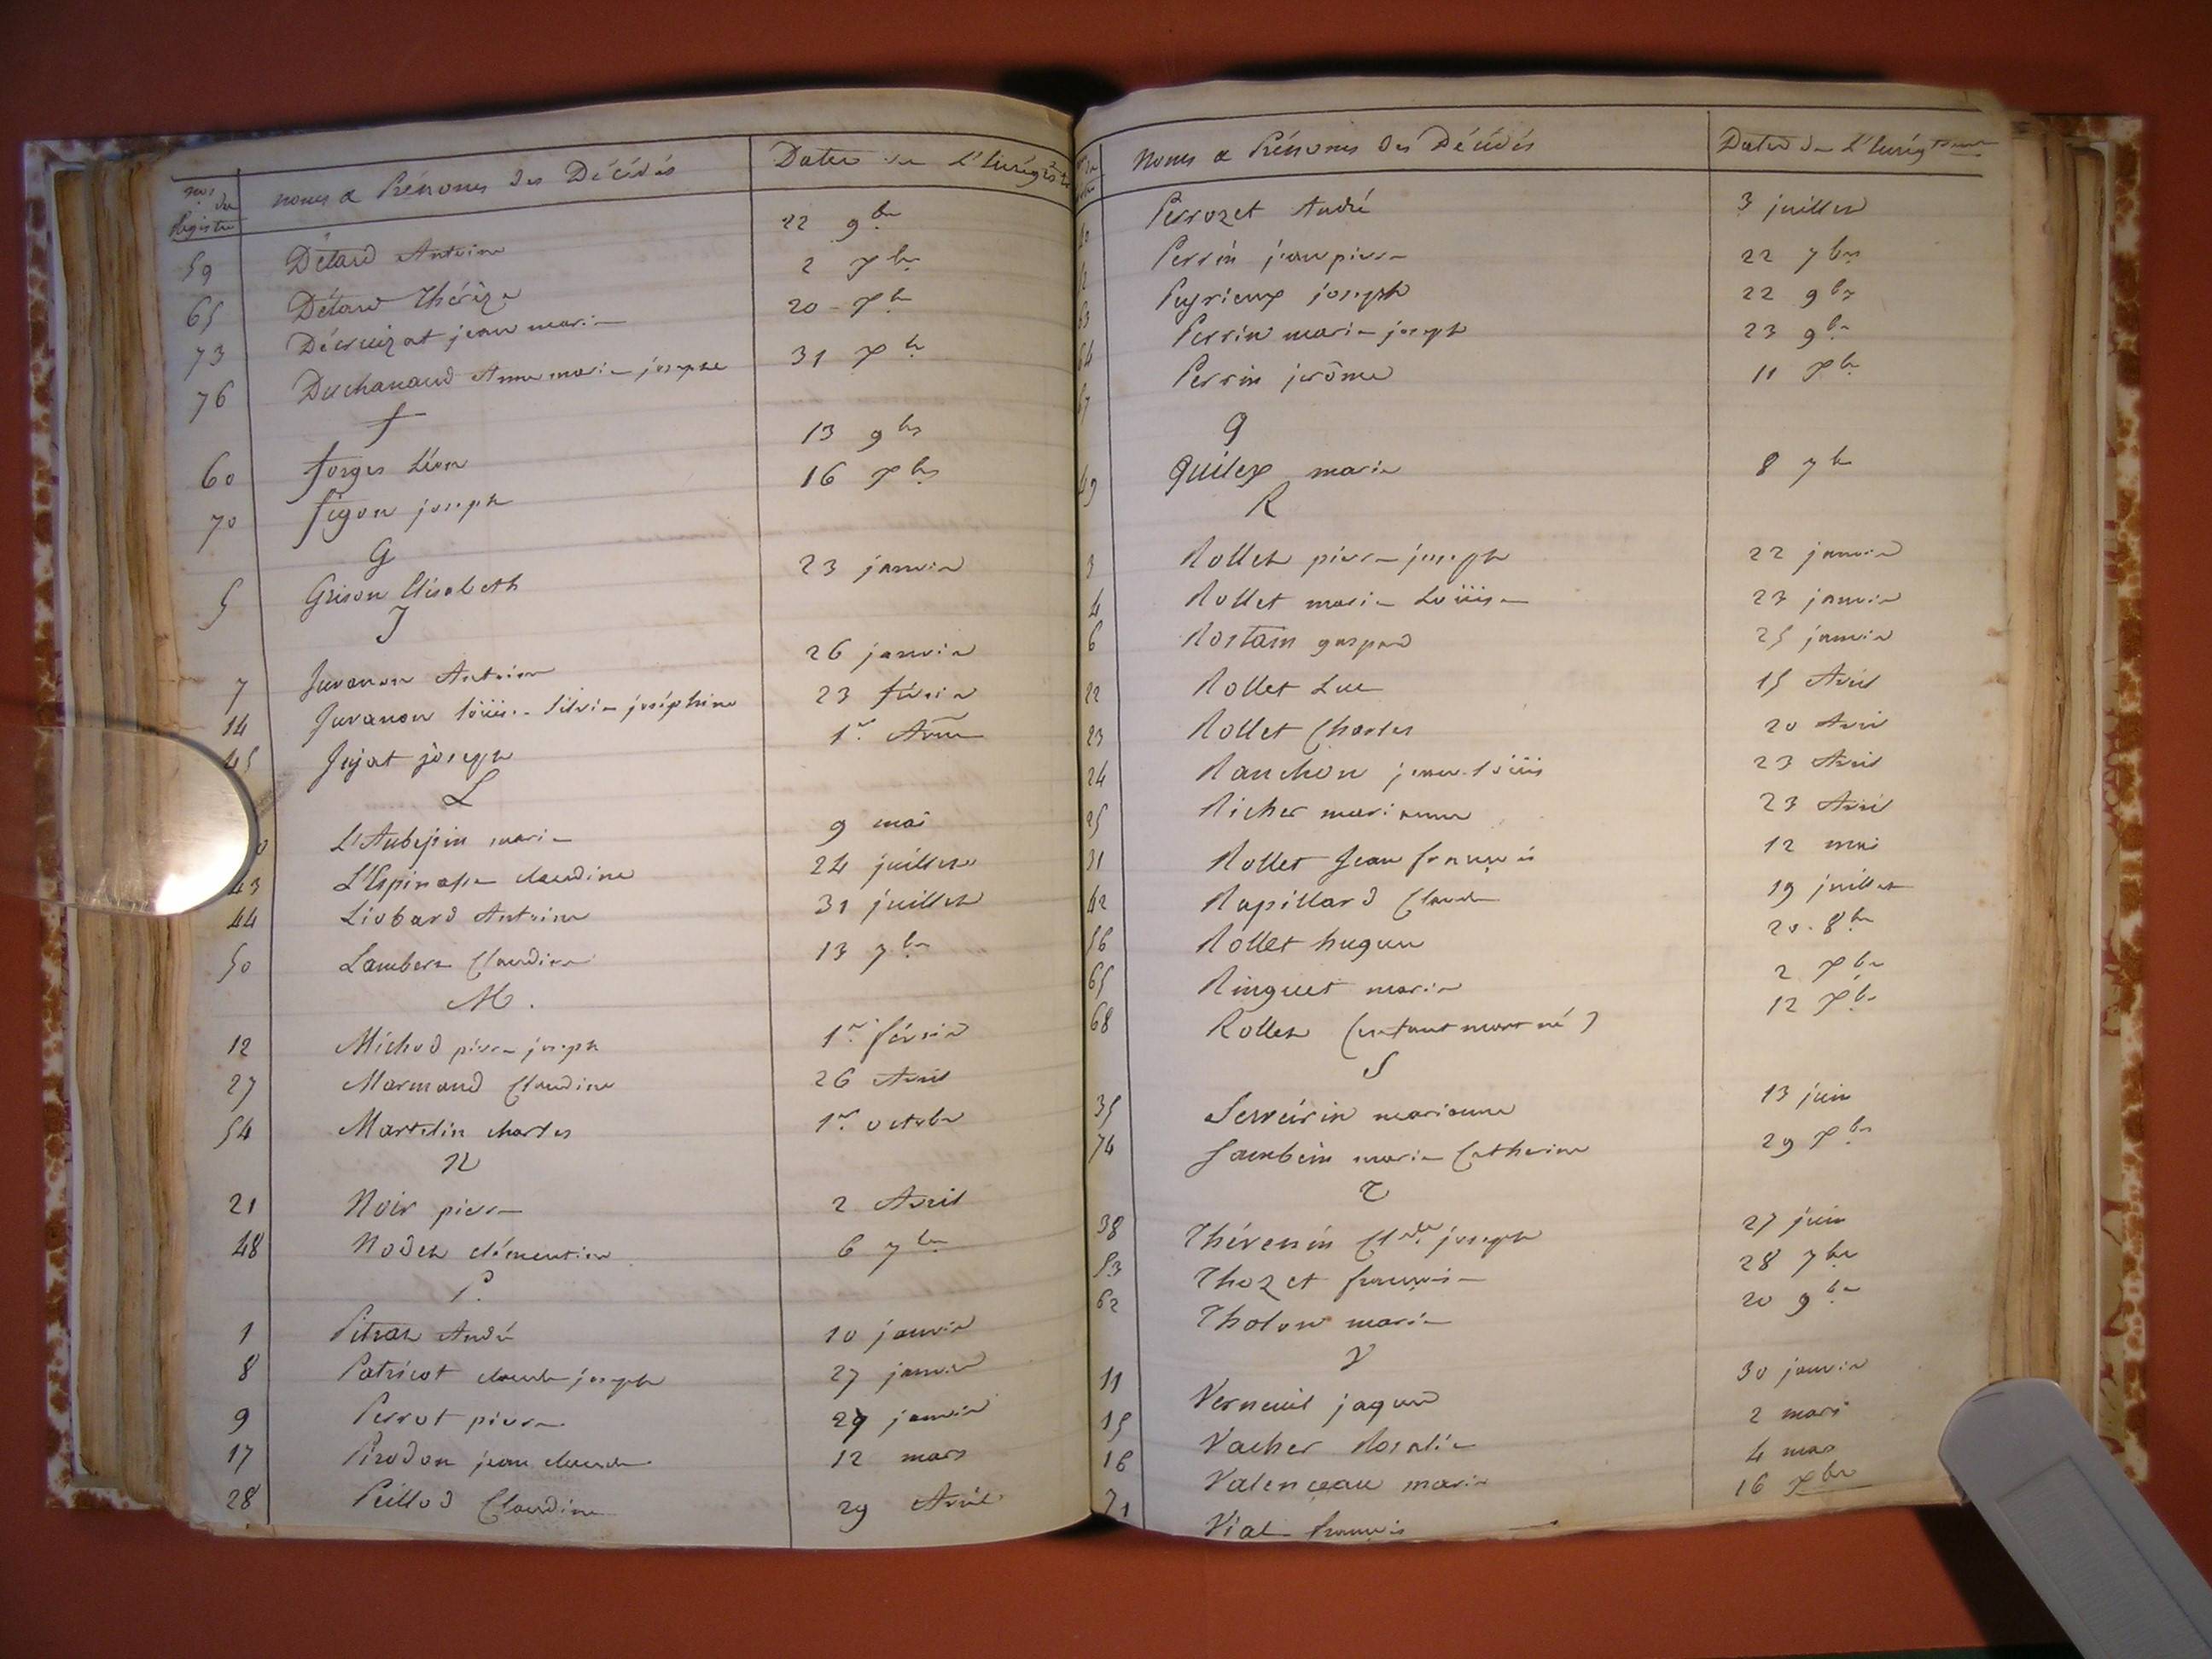 nos du Registre noms & Prénoms des Décédés Dates de L'Enrégistr
59 Détard Antoine 22 9bre
65 Détard Thérèze 2 Xbre
73 Décruizat jean marie 20 Xbre
76 Duchanaud Anne marie josephe 31 Xbre
f
60 forges Léon 13 9bre
70 figon joseph 16 Xbre
G
5 Grison Elisabeth 23 janvier
J
7 Juvanon Antoine 26 janvier
14 Juvanon Loüise Silvie joséphine 23 février
45 Jujat joseph 1er
L
L'Aubepin marie 9 mai
43 L'Espinasse claudine 24 juillet
44 Liobard Antoine 31 juillet
50 Lambert Claudine 13 7bre
M.
12 Michod pierre joseph 1er février
27 Marmand Claudine 26 Avril
54 Martelin charles 1er octobre
N
21 Noir pierre 2 Avril
48 Nodet clémentine 6 7bre
P.
1 Pitrat André 10 janvier
8 Patricot claude joseph 27 janvier
9 Perrot pierre 29 janvier
17 Pirodon jean claude 12 mars
28 Peillod Claudine 29 Avril
Noms & Prénoms des Décédés Dates de L'Enrégtrement
Perrozet André 3 juillet
Perrin jean pierre 22 7bre
63 Peyrieux joseph 22 9bre
64 Perrin marie joseph 23 9bre
67 Perrin jérôme 11 Xbre
Q
49 Quilex marie 8 7bre
R
3 Rollet pierre joseph 22 janvier
4 Rollet marie Loüise 23 janvier
6 Rostain gaspard 25 janvier
22 Rollet Luc 15 Avril
23 Rollet Charles 20 Avril
24 Ranchon jean Loüis 23 Avril
25 Richer marianne 23 Avril
31 Rollet Jean françois 12 mai
42 Rapillard Claude 19 juillet
56 Rollet hugues 20. 8bre
65 Ringuet marie 2 Xbre
68 Rollet (enfant mort né) 12 Xbre
S
35 marianne 13 juin
74 Sambein marie Catherine 29 Xbre
T
38 Thévenin Clde joseph 27 juin
53 Thozet 28 7bre
62 Tholon marie 20 9bre
V
11 Verneuil jaques 30 janvier
15 Vacher Rosalie 2 mars
16 Valenceau marie 4 mars
71 Vial françois 16 Xbre